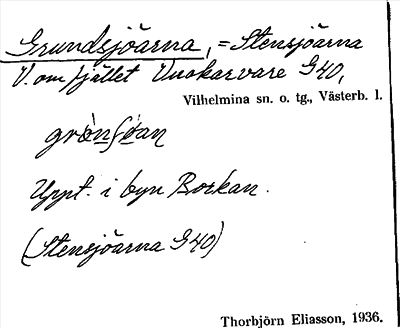 Grundsjöarna, = Stensjöarna
V. om fjället Vuokarvare G40,
Vilhelmina sn. o. tg., Västerb. l.
Uppt. i byn Borkan.
(Stensjöarna G40)
Thorbjörn Eliasson, 1936.